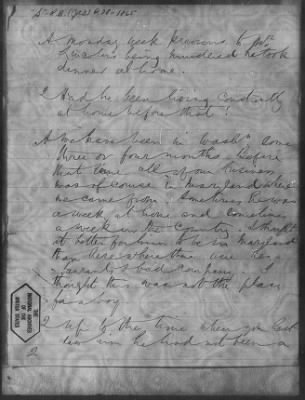 A monday week previous to prst
Lincoln's being murdered he took
dinner at home.
Q Had he been living constantly
at home before that?
A We have been in Wash" some
three or four months before
that time all of our business
was of course in Maryland where
we came from. Sometimes he was
a week at home and sometimes
a week in the country. I thought
it better for him to be in Maryland
than here where there were
bad company I
thought this was not the place
for a boy
Q Up to the time when you last
saw him he had not been a
2
THE
NATIONAL ARCHIVES
OF THE
UNITED STATES